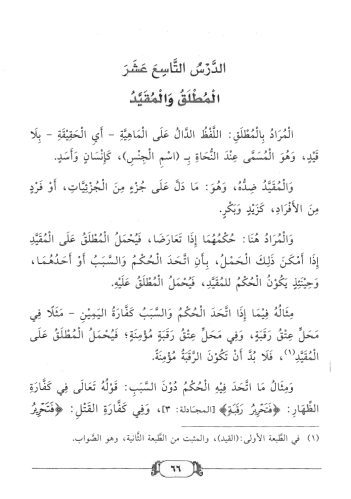 الدَّرْسُ التَّاسِعَ عَشَرَ
الْمُطْلَقُ وَالْمُقَيَّدُ
الْمُرَادُ بِالْمُطْلَقِ: اللَّفْظُ الدَّالُّ عَلَى الْمَاهِيَّةِ - أَيِ الْحَقِيقَةِ - بِلَا
قَيْدٍ، وَهُوَ الْمُسَمَّى عِنْدَ النُّحَاةِ بِـ (اسْمِ الْجِنْسِ)، كَإِنْسَانٍ وَأَسَدٍ.
وَالْمُقَيَّدُ ضِدُّهُ، وَهُوَ: مَا دَلَّ عَلَى جُزْءٍ مِنَ الْجُزْئِيَّاتِ، أَوْ فَرْدٍ
مِنَ الْأَفْرَادِ، كَزَيْدٍ وَبَكْرٍ.
وَالْمُرَادُ هُنَا: حُكْمُهُمَا إِذَا تَعَارَضَا، فَيُحْمَلُ الْمُطْلَقُ عَلَى الْمُقَيَّدِ
إِذَا أَمْكَنَ ذَلِكَ الْحَمْلُ، بِأَنِ اتَّحَدَ الْحُكْمُ وَالسَّبَبُ أَوْ أَحَدُهُمَا،
وَحِينَئِذٍ يَكُونُ الْحُكْمُ لِلْمُقَيَّدِ، فَيُحْمَلُ الْمُطْلَقُ عَلَيْهِ.
مِثَالُهُ فِيمَا إِذَا اتَّحَدَ الْحُكْمُ وَالسَّبَبُ كَفَّارَةُ الْيَمِينِ - مَثَلًا فِي
مَحَلٍّ عِتْقُ رَقَبَةٍ، وَفِي مَحَلٍّ عِتْقُ رَقَبَةٍ مُؤْمِنَةٍ؛ فَيُحْمَلُ الْمُطْلَقُ عَلَى
الْمُقَيَّدِ(١)، فَلَا بُدَّ أَنْ تَكُونَ الرَّقَبَةُ مُؤْمِنَةً.
وَمِثَالُ مَا اتَّحَدَ فِيهِ الْحُكْمُ دُونَ السَّبَبِ: قَوْلُهُ تَعَالَى فِي كَفَّارَةِ
الظِّهَارِ: ﴿فَتَحْرِيرُ رَقَبَةٍ﴾ [المجادلة: ٣]، وَفِي كَفَّارَةِ الْقَتْلِ: ﴿فَتَحْرِيرُ
(١) في الطبعة الأولى: (القيد)، والمثبت من الطبعة الثانية، وهو الصواب.
٦٦